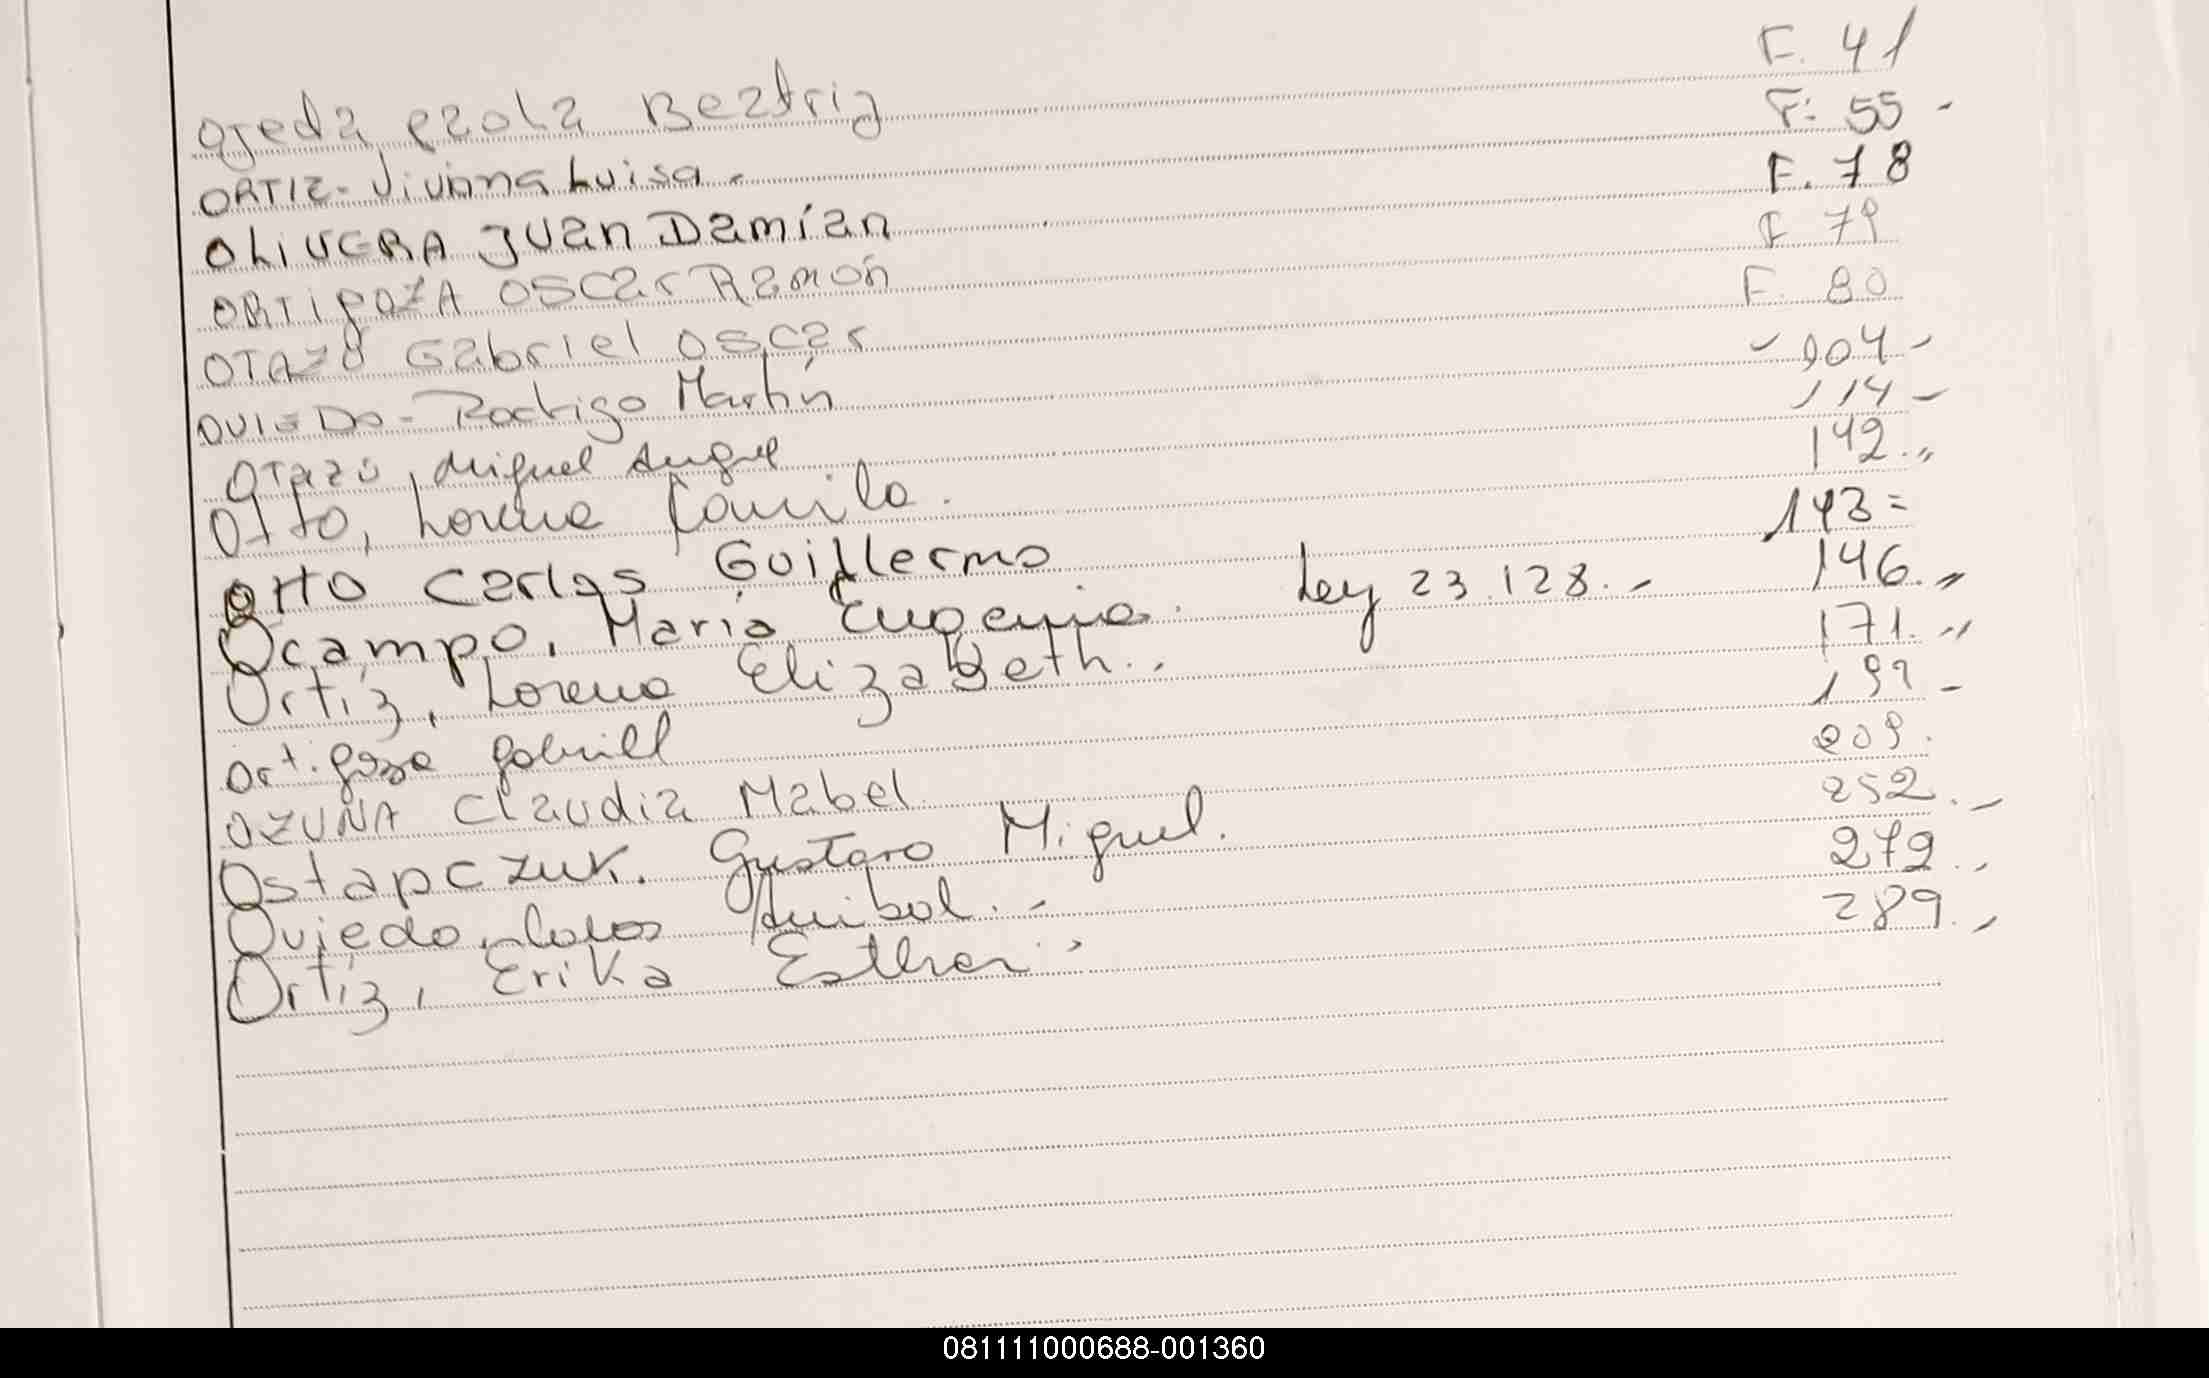 Ojeda Paola Beatriz F. 41
ORTIZ - Viviana Luisa. F: 55 -
OLIVERA JUan Damían F. 78
ORTIgOZA OSCar Ramón F 79
OTAZÚ Gabriel OSCar F. 80
OVIEDO - Rodrigo Martín - 104 -
OTAZÚ, Miguel Angel 114 -
Otto, Lorena Camila. 142.,,
OttO Carlos Guillermo 143 =
Ocampo, María Eugenia. Ley 23.128. - 146.,,
Ortíz, Lorena Elizabeth.. 171. ,,
Ortigoza Gabriel 199 -
OZUNA Claudia Mabel 209.
Ostapczuk. Gustavo Miguel. 252.-
Oviedo, Carlos Anibal. - 272.,
Ortíz, Erika Esther. , 289.,
081111000688-001360